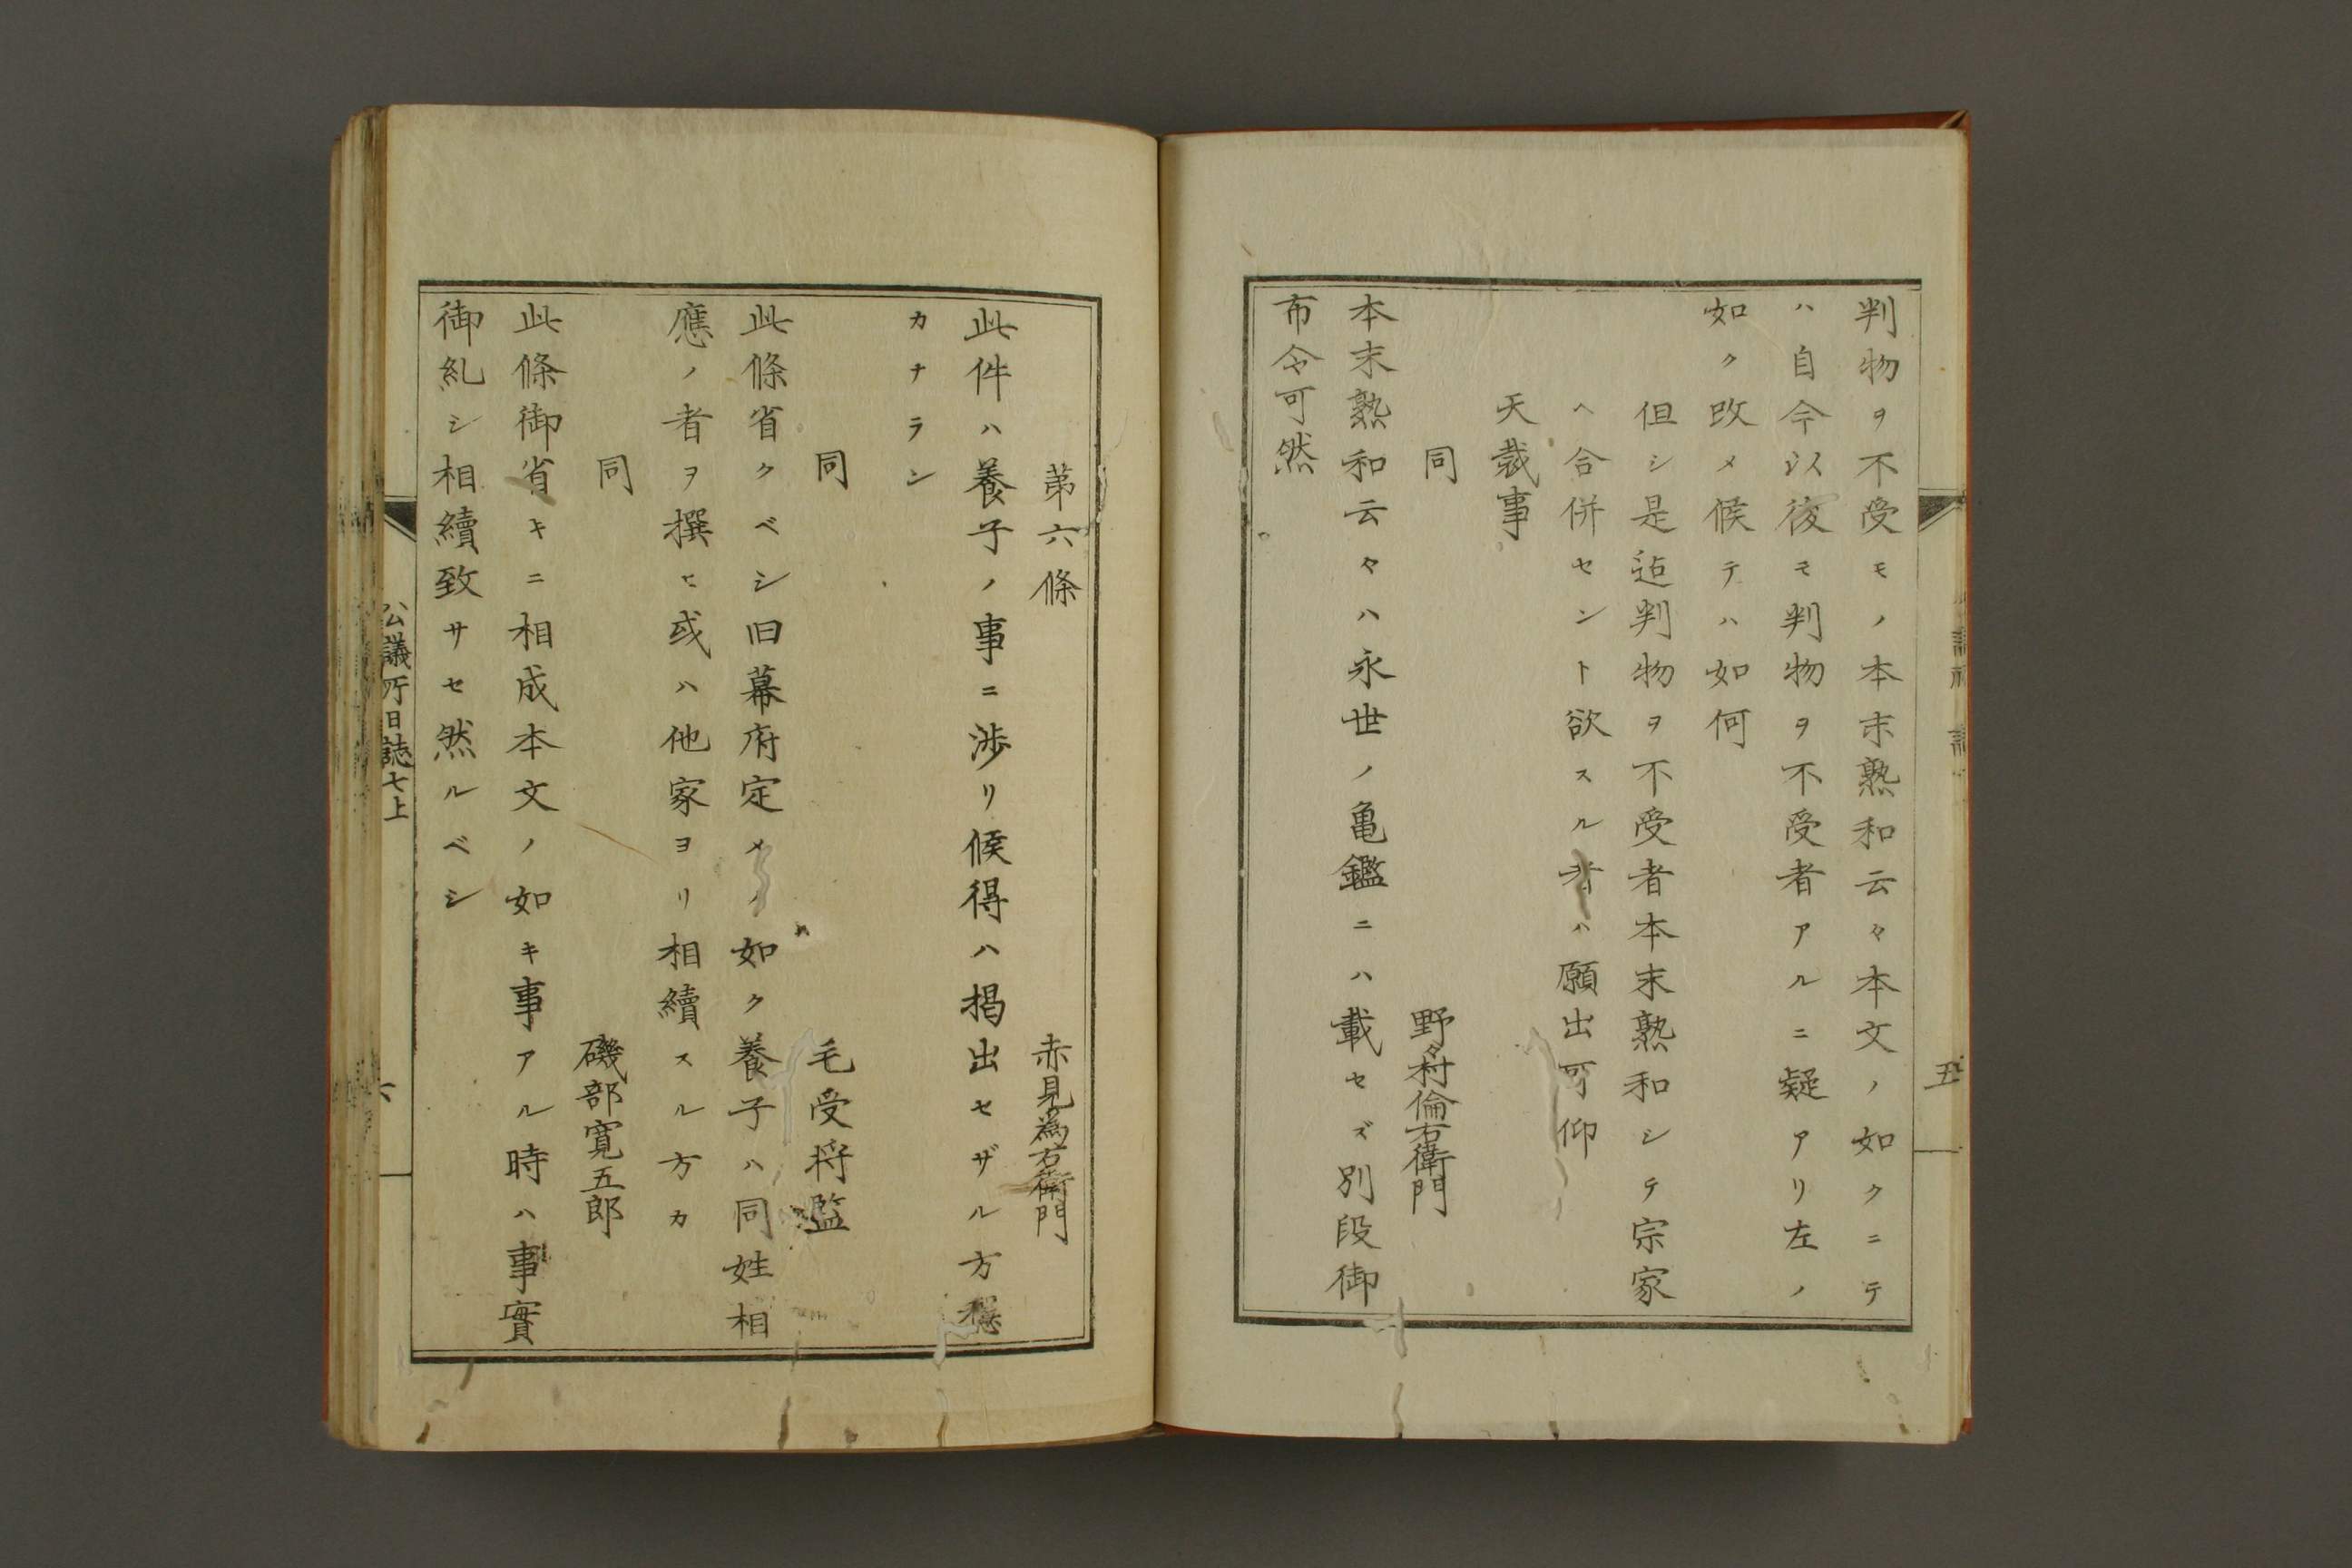 判物ヲ不受モノ本末熟和云々本文ノ如クニテ
ハ自今以後モ判物ヲ不受者アルニ疑アリ左ノ
如ク改メ候テハ如何
但シ是迠判物ヲ不受者本末熟和シテ宗家
ヘ合併セント欲スル者ハ願出可仰
天裁事
同 野々村倫右衛門
本末熟和云々ハ永世ノ亀鑑ニハ載セズ別段御
布令可然
五
第六條 赤見為右衛門
此件ハ養子ノ事ニ渉リ候得ハ掲出セザル方穏
カナラン
同 毛受将監
此條省クベシ旧幕府定メノ如ク養子ハ同姓相
應ノ者ヲ撰ヒ或ハ他家ヨリ相續スル方カ
同 磯部寛五郎
此條御省キニ相成本文ノ如キ事アル時ハ事實
御糺シ相續致サセ然ルベシ
公議所日誌七上
六